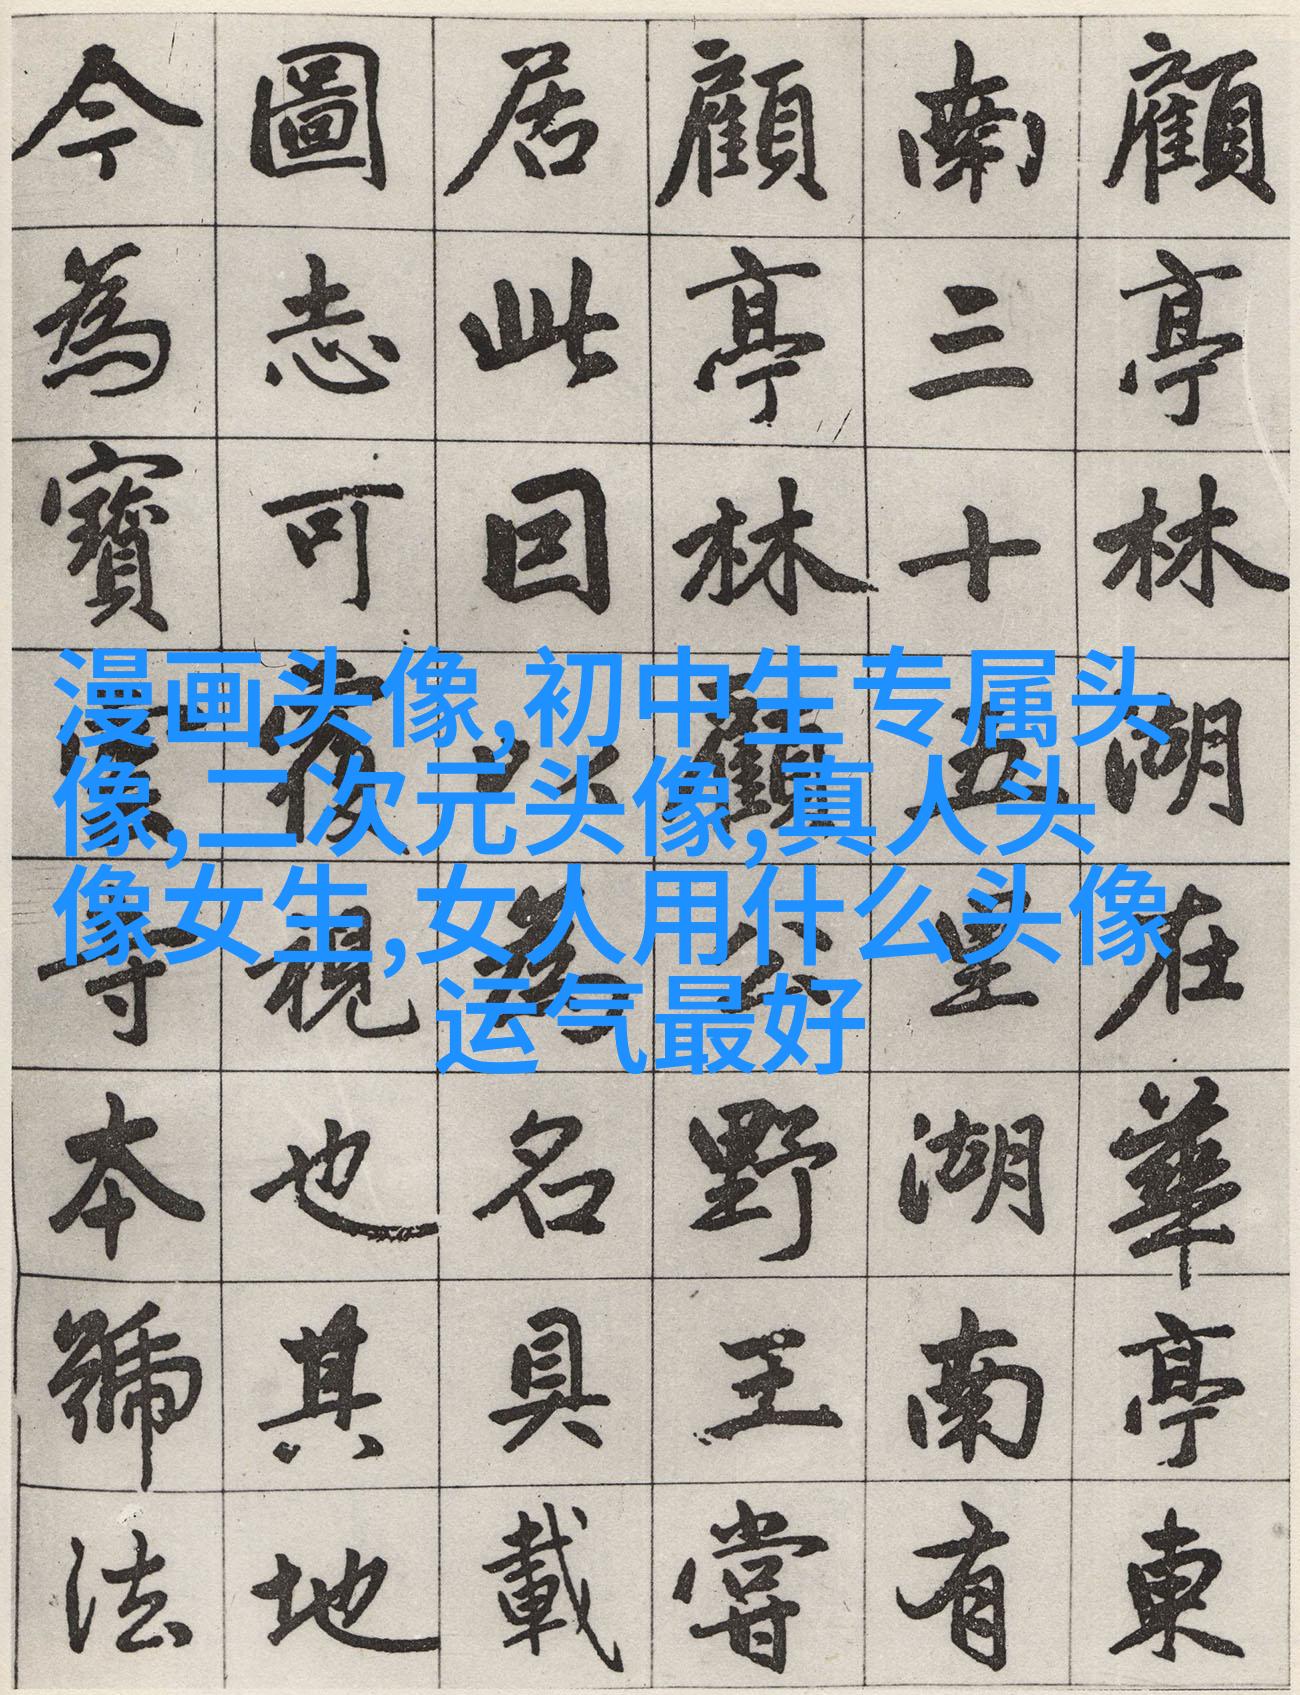 顧亭林湖在華亭東
南三十五里湖南有
顧亭林顧公野王嘗
居此因以為名具載
圖志可覆視也其地
今為寶雲寺本號法
漫画头像,初中生专属头
像,二次元头像,真人头
像女生,女人用什么头像
运气最好